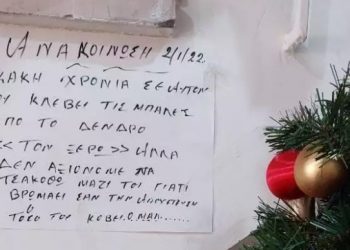 ΑΝΑΚΟΙΝΩΣΗ 2/1/22
ΚΑΚΗ ΧΡΟΝΙΑ ΣΕ ΑΥΤΟΝ
ΠΟΥ ΚΛΕΒΕΙ ΤΙΣ ΜΠΑΛΕΣ
ΑΠΟ ΤΟ ΔΕΝΔΡΟ
<<ΤΟΝ ΞΕΡΩ>> ΑΛΛΑ
ΔΕΝ ΑΞΙΟΝΟΜΕ ΝΑ
ΤΣΑΚΟΘΩ ΜΑΖΙ ΤΟΥ ΓΙΑΤΙ
ΒΡΩΜΑΕΙ ΣΑΝ ΤΗΝ
ΤΟΣΟ ΤΟΥ ΚΟΒΕΙ